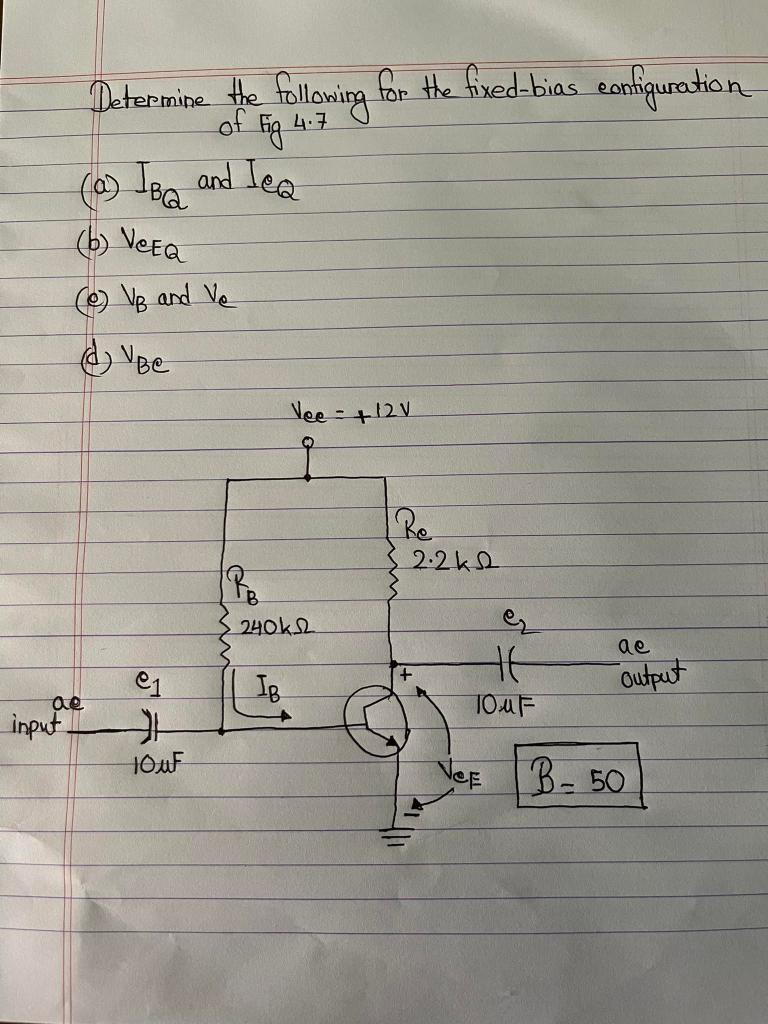 Determine the following for the fixed-bias configuration
of Fig 4.7
(a) IBQ and IcQ
(b) VcEQ
(c) VB and Vc
(d) VBc
Vcc = +12V
Rc
2.2kΩ
RB
240kΩ
c2
ac
output
10μF
+
c1
IB
ac
input
10μF
VcE
-
B = 50